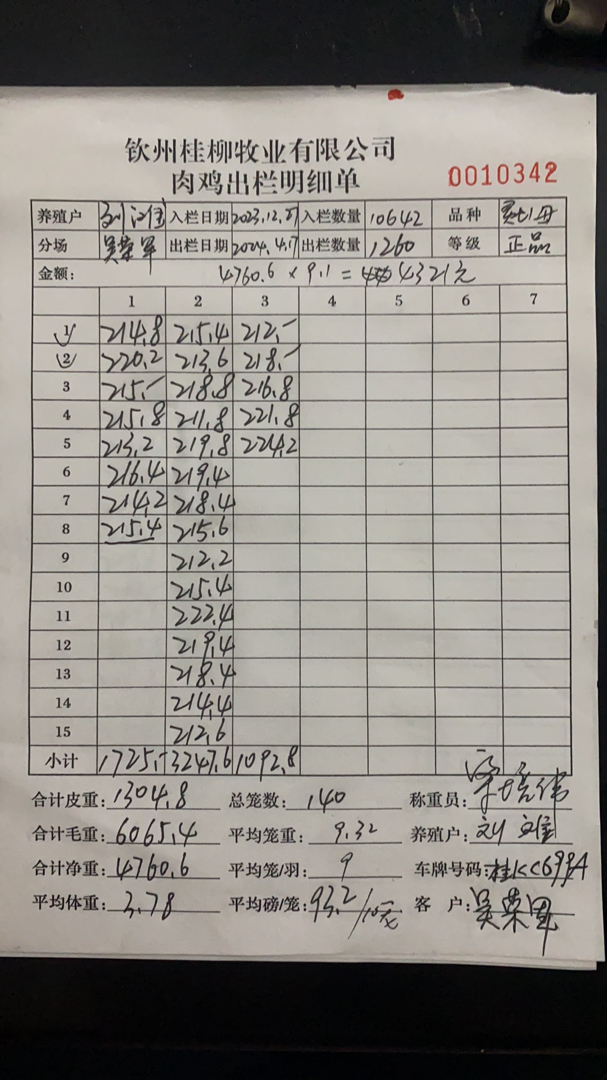 钦州桂柳牧业有限公司
肉鸡出栏明细单 0010342
养殖户 刘 入栏日期 2023.12.27 入栏数量 10642 品种
分场 吴荣军 出栏日期 2024.4.17 出栏数量 1260 等级 正品
金额: 4760.6 × 9.1 = 4321元
1 2 3 4 5 6 7
1 214.8 215.4 212.-
2 220.2 213.6 218.-
3 215.- 218.8 216.8
4 215.8 211.8 221.8
5 213.2 219.8 224.2
6 216.4 219.4
7 214.2 218.4
8 215.4 215.6
9 212.2
10 215.4
11 222.4
12 219.4
13 218.4
14 214.4
15 212.6
小计 1725.- 3247.6 1092.8
合计皮重: 1304.8 总笼数: 140 称重员:
合计毛重: 6065.4 平均笼重: 9.32 养殖户: 刘
合计净重: 4760.6 平均笼/羽: 9 车牌号码: 桂KC699A
平均体重: 3.78 平均磅/笼: 93.2/10 客 户: 吴荣军